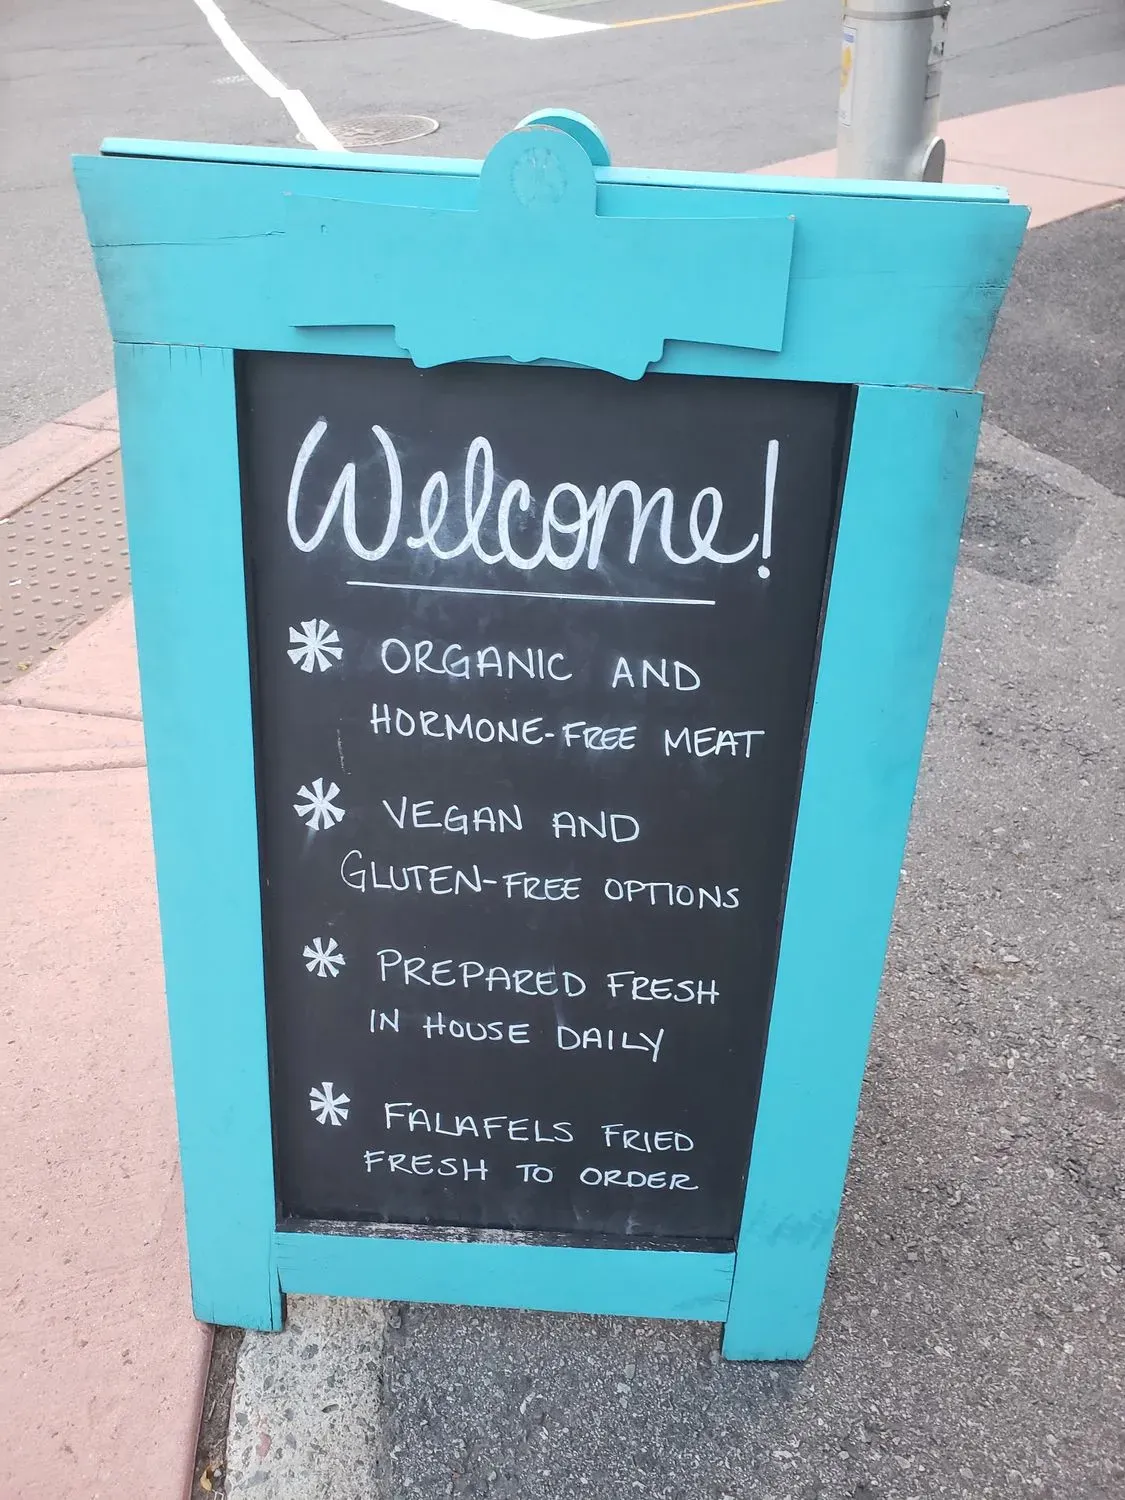 Welcome!
* ORGANIC AND
HORMONE-FREE MEAT
* VEGAN AND
GLUTEN-FREE OPTIONS
* PREPARED FRESH
IN HOUSE DAILY
* FALAFELS FRIED
FRESH TO ORDER